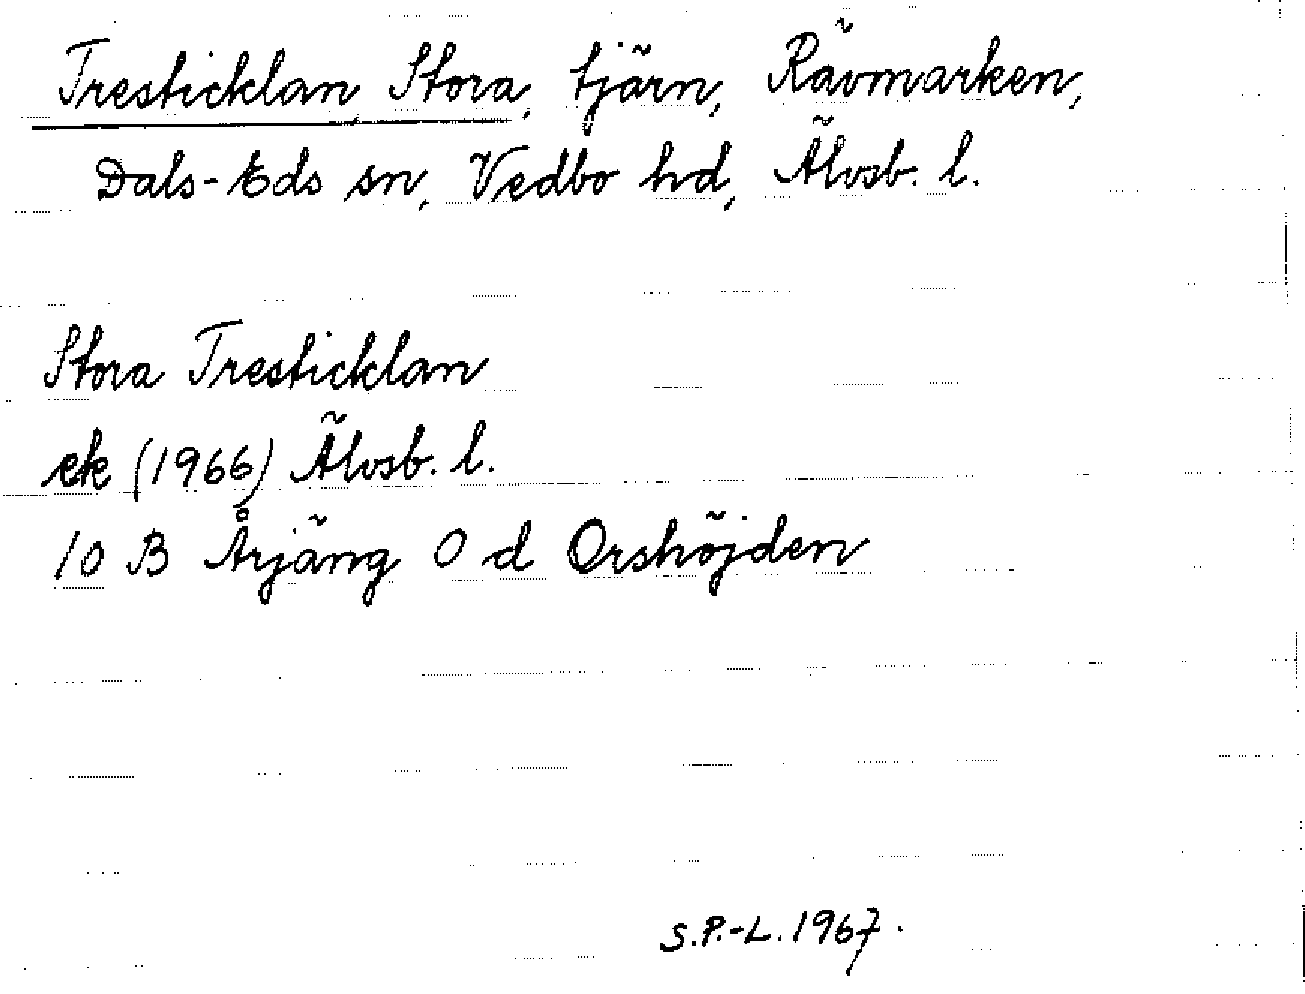 Tresticklan, Stora, tjärn, Rävmarken,
Dals-Eds sn, Vedbo hd, Älvsb. l.
Stora Tresticklan
ek (1966) Älvsb. l.
10 B Årjäng 0 d Orshöjden
S.P.-L. 1967.